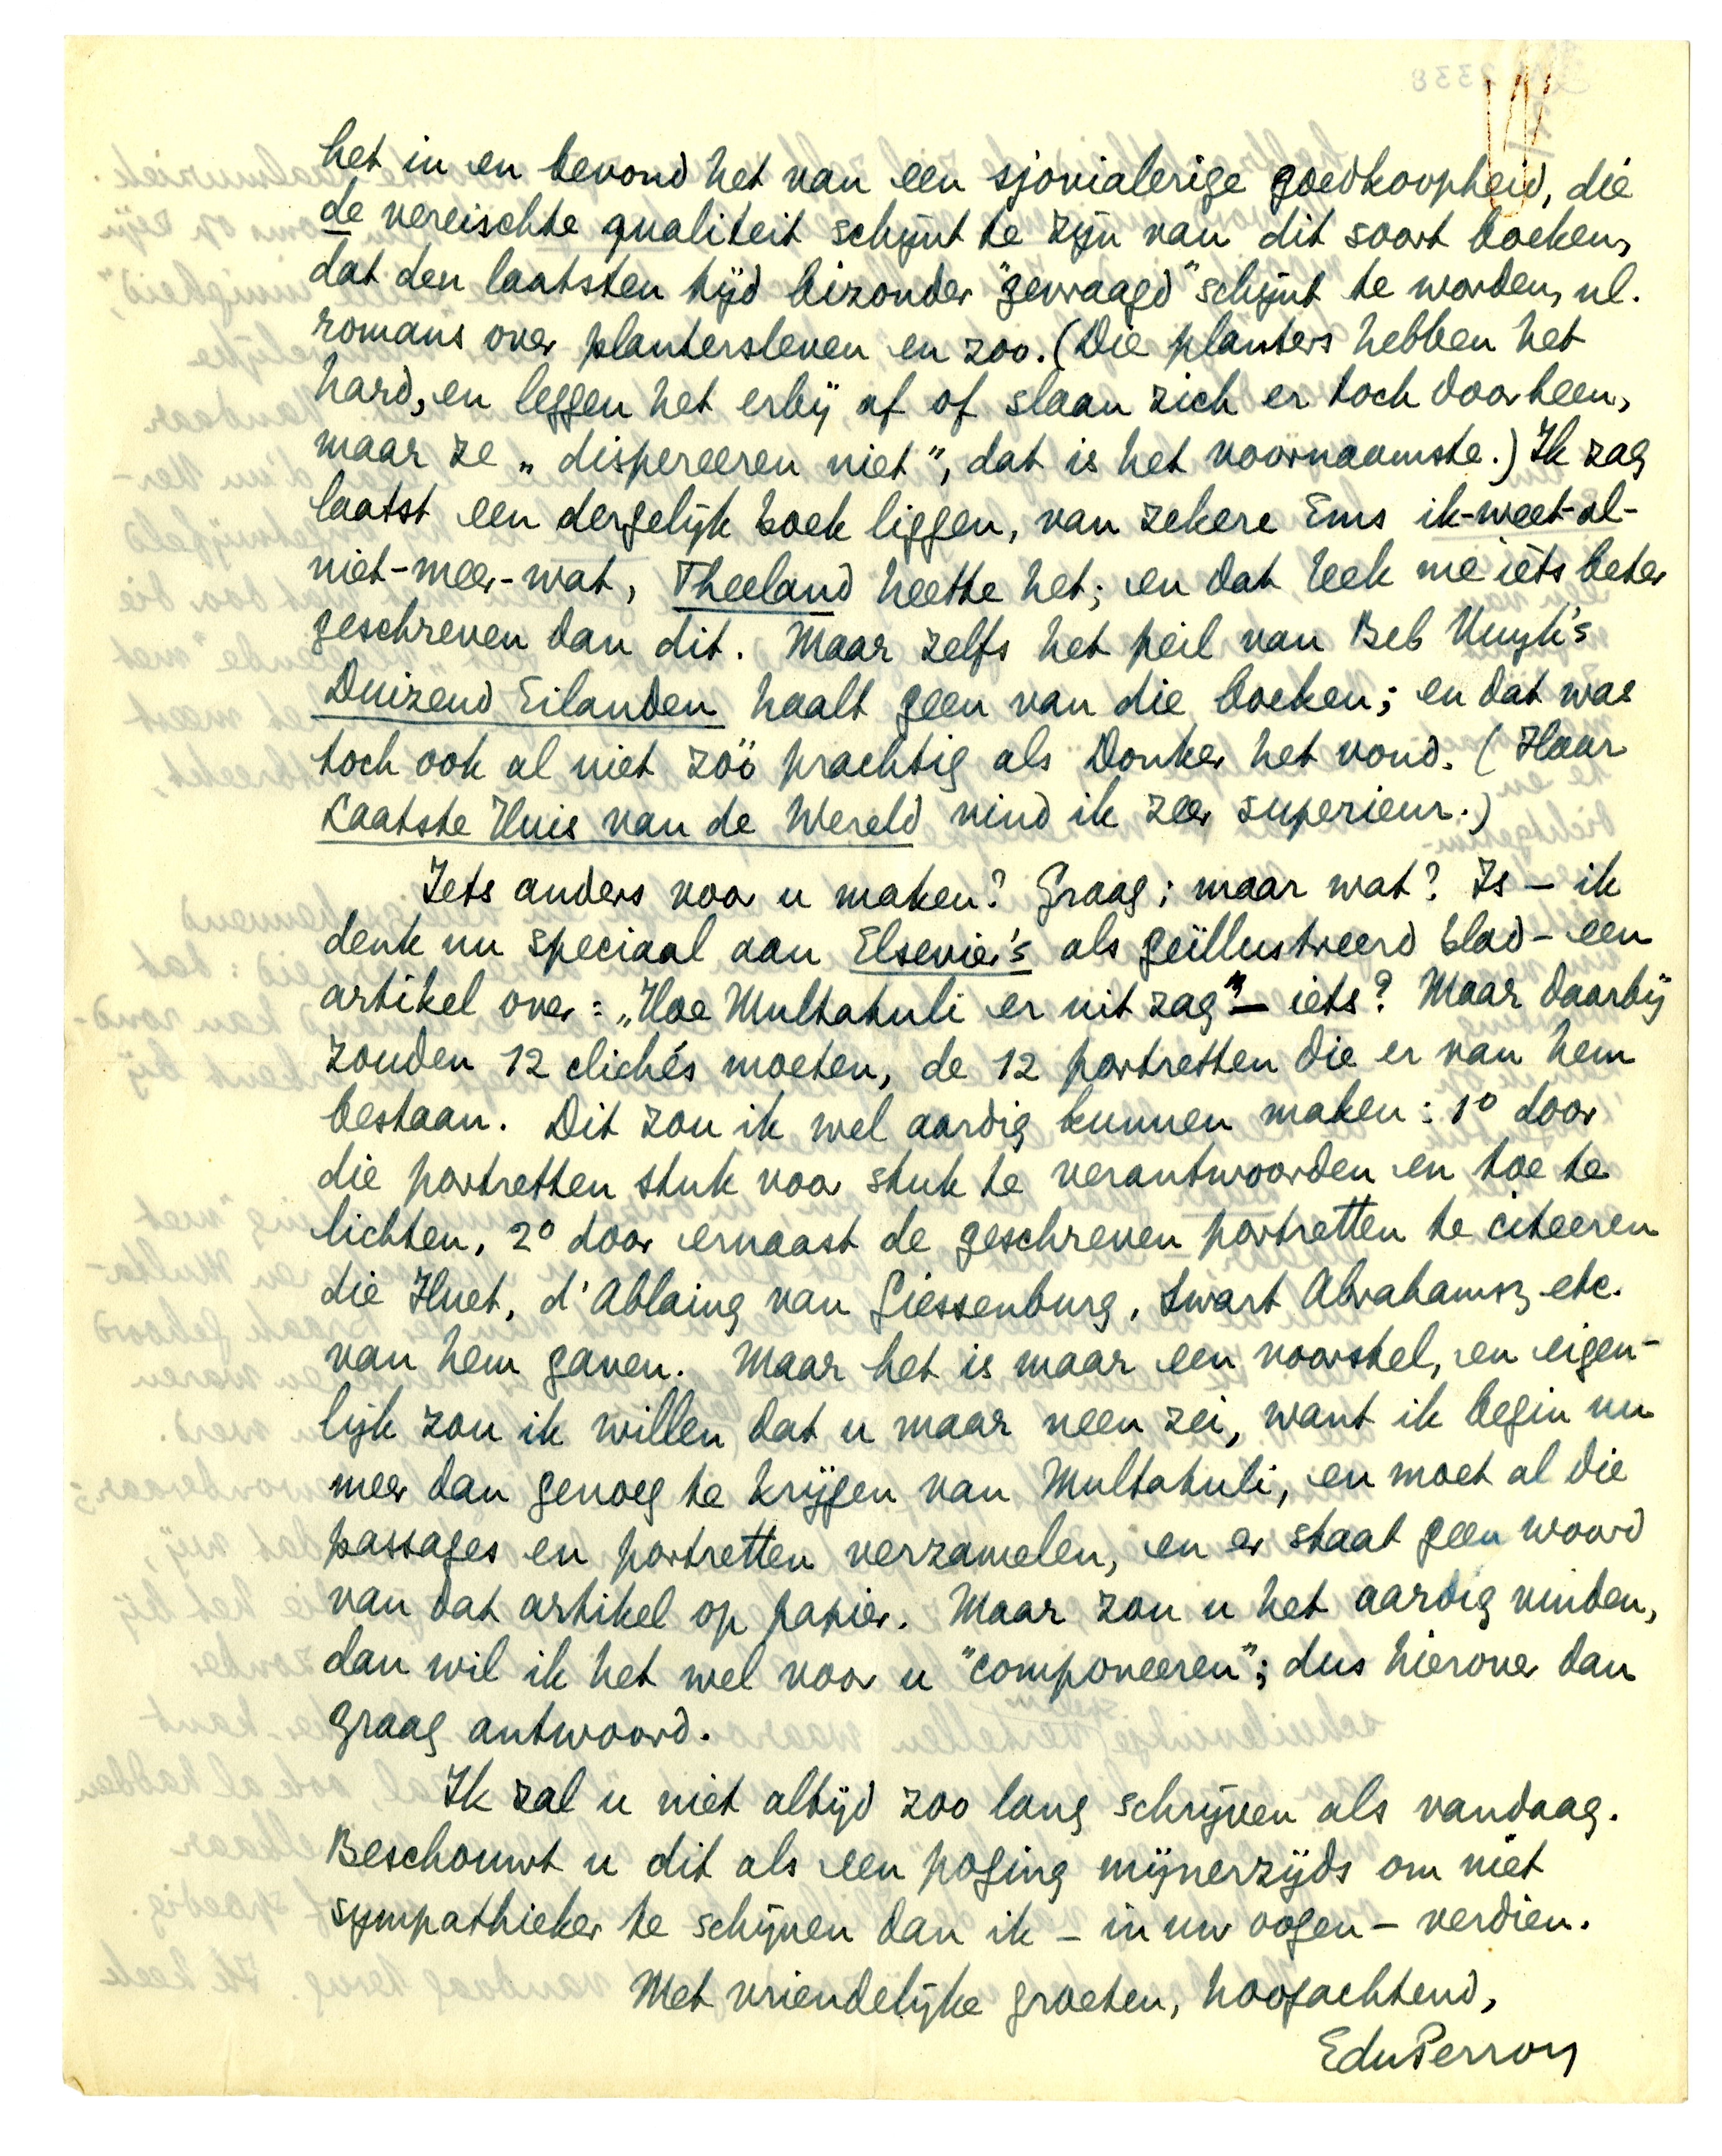 het in en bevond het van een sjovialerige goedkoopheid, die
de vereischte qualiteit schijnt te zijn van dit soort boeken,
dat den laatsten tijd bizonder "gevraagd" schijnt te worden, nl.
romans over plantersleven en zoo. (Die planters hebben het
hard, en leggen het erbij af of slaan zich er toch doorheen,
maar ze „dispereeren niet”, dat is het voornaamste.) Ik zag
laatst een dergelijk boek liggen, van zekere Ems ik-weet-al-
niet-meer-wat, Theeland heette het; en dat leek me iets beter
geschreven dan dit. Maar zelfs het peil van Beb Vuyk's
Duizend Eilanden haalt geen van die boeken; en dat was
toch ook al niet zóó prachtig als Donker het vond. (Haar
Laatste Huis van de Wereld vind ik zeer superieur.)
Iets anders voor u maken? Graag; maar wat? Is – ik
denk nu speciaal aan Elsevier's als geïllustreerd blad – een
artikel over: „Hoe Multatuli er uit zag” – iets? Maar daarbij
zouden 12 clichés moeten, de 12 portretten die er van hem
bestaan. Dit zou ik wel aardig kunnen maken: 1° door
die portretten stuk voor stuk te verantwoorden en toe te
lichten, 2° door ernaast de geschreven portretten te citeeren
die Huet, d'Ablaing van Giessenburg, Swart Abrahamsz etc.
van hem gaven. Maar het is maar een voorstel, en eigen-
lijk zou ik willen dat u maar neen zei, want ik begin nu
meer dan genoeg te krijgen van Multatuli, en moet al die
passages en portretten verzamelen, en er staat geen woord
van dat artikel op papier. Maar zou u het aardig vinden,
dan wil ik het wel voor u "componeeren"; dus hierover dan
graag antwoord.
Ik zal u niet altijd zoo lang schrijven als vandaag.
Beschouwt u dit als een poging mijnerzijds om niet
sympathieker te schijnen dan ik – in uw oogen – verdien.
Met vriendelijke groeten, hoogachtend,
EduPerron